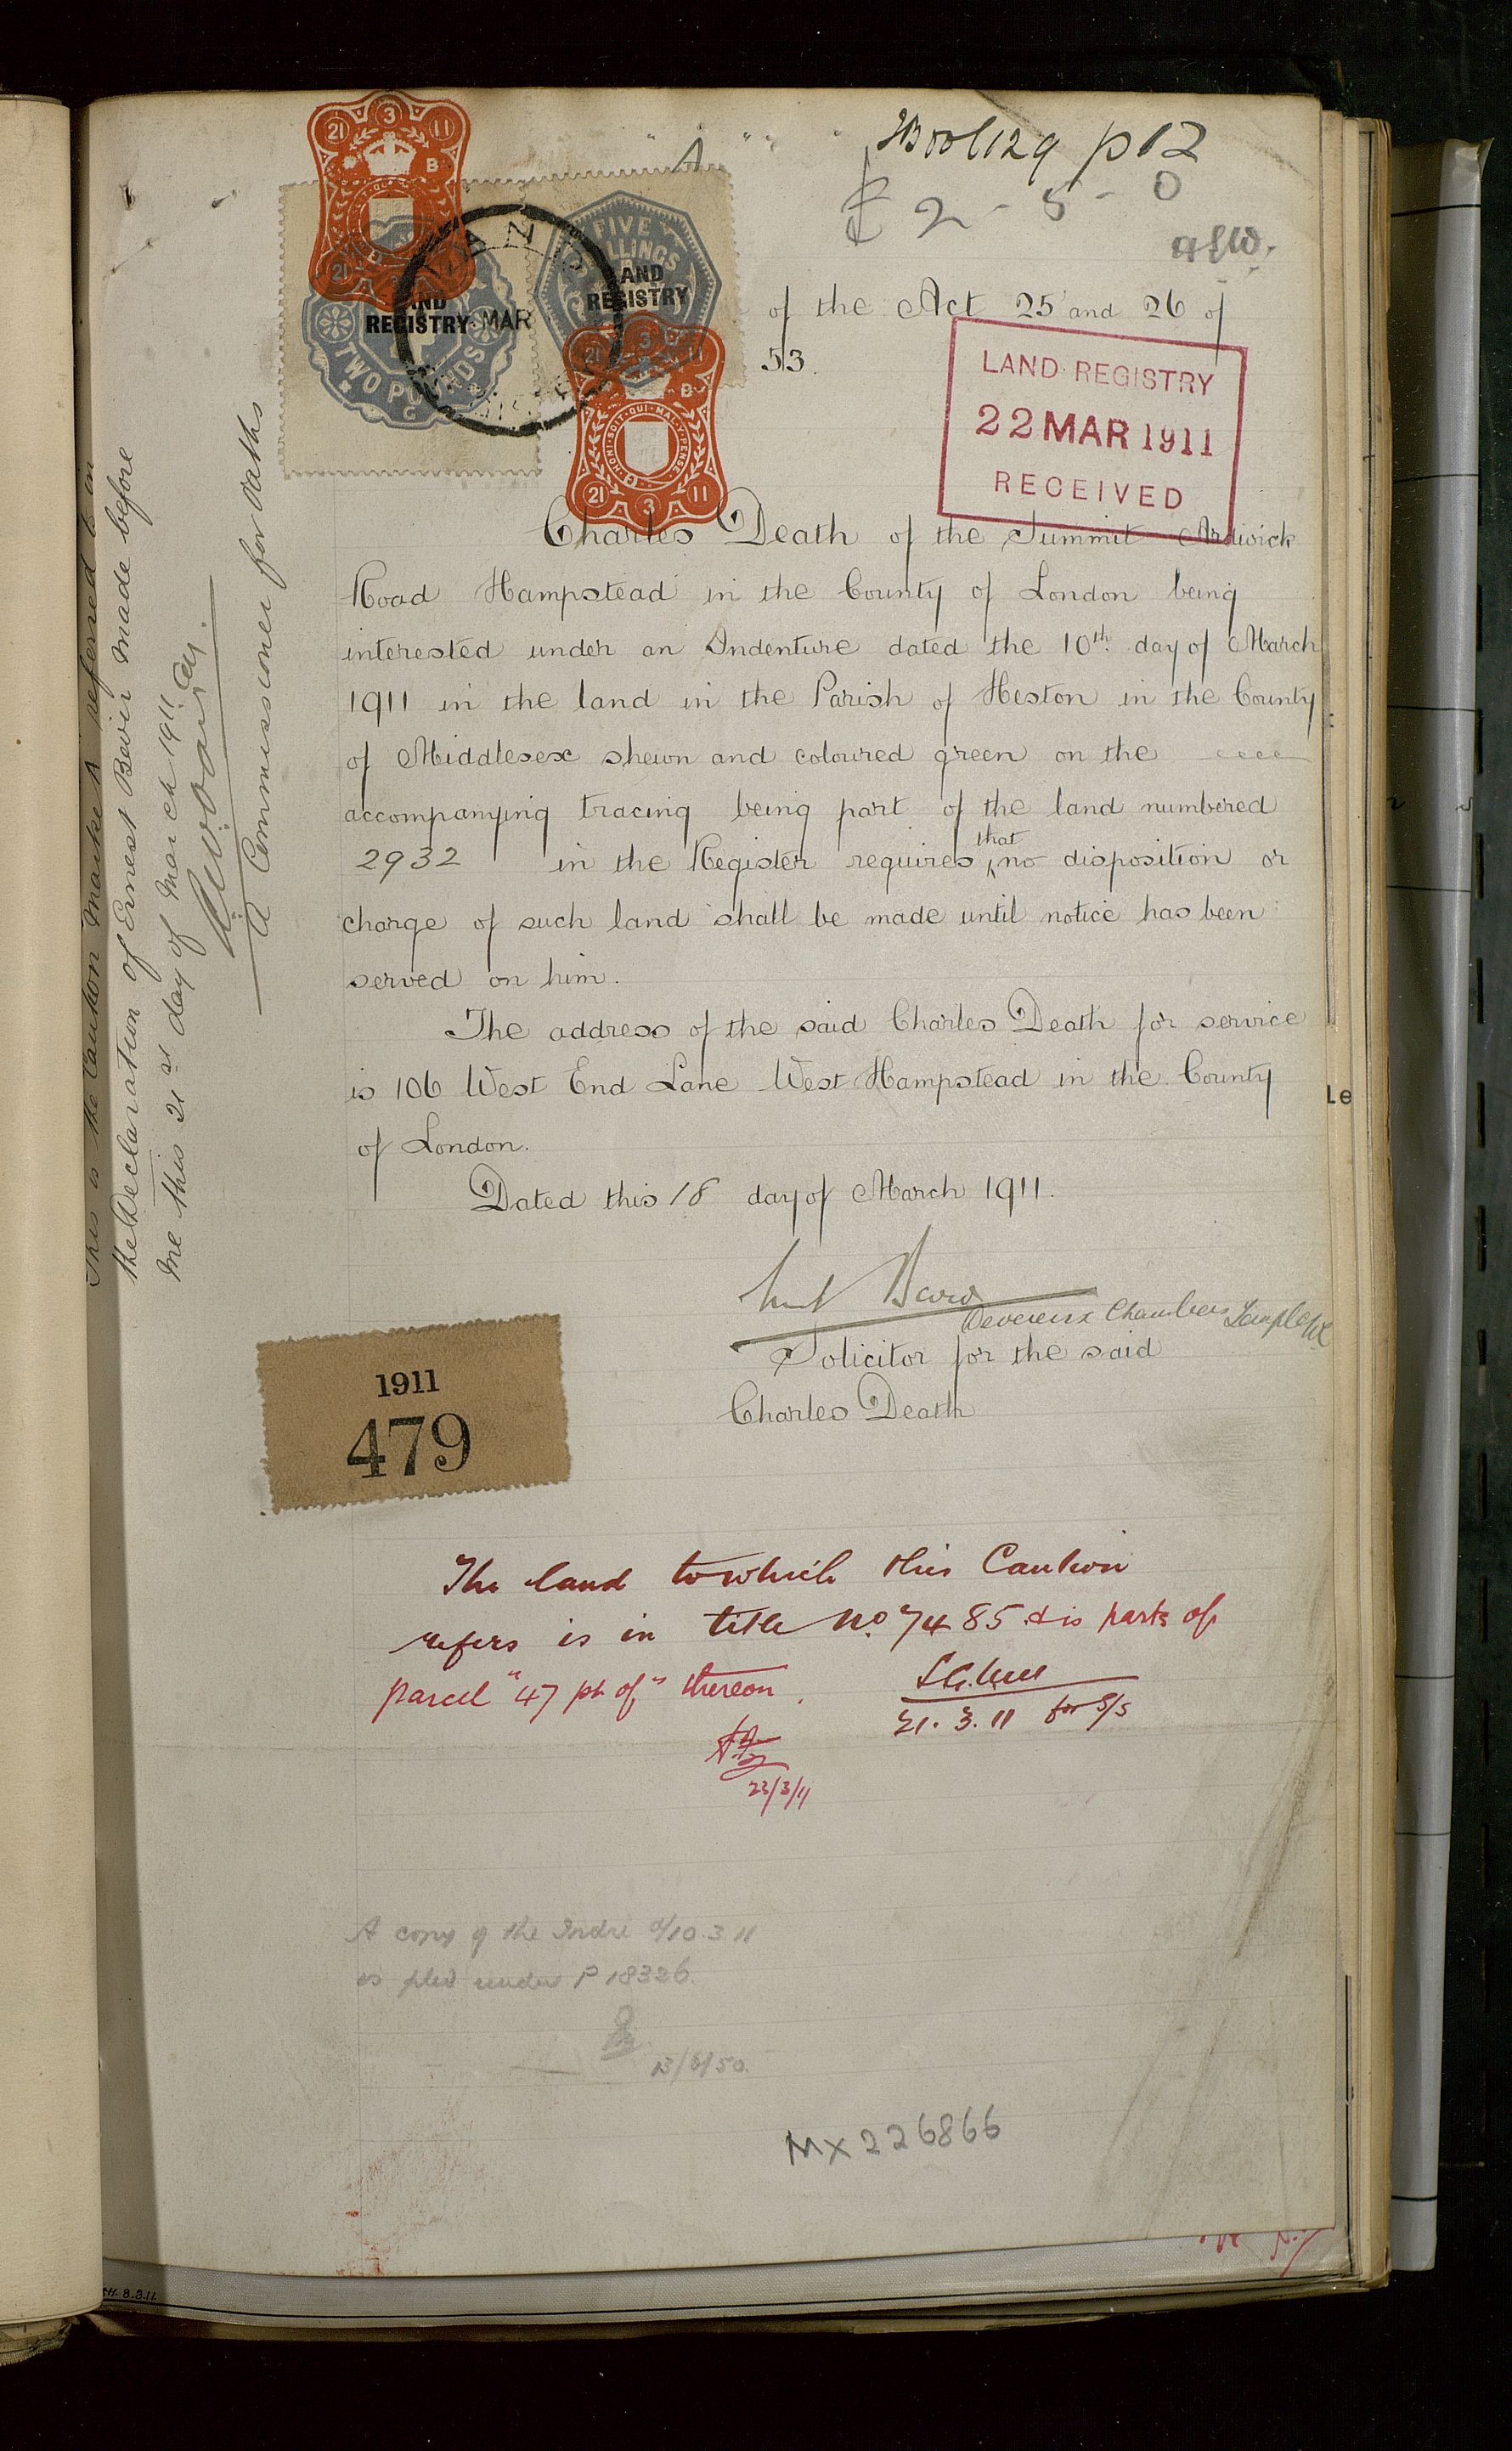 "A"
Book 129 p 12
£2-5-0
21 3 11
B
21
LAND
REGISTRY
TWO POUNDS
MAR
FIVE
SHILLINGS
LAND
REGISTRY
21 3 11
B
HONI·SOIT·QUI·MAL·Y·PENSE
21 3 11
of the Act 25 and 26 of
53.
LAND REGISTRY
22 MAR 1911
RECEIVED
Charles Death of the Summit Ardwick
Road Hampstead in the County of London being
interested under an Indenture dated the 10th day of March
1911 in the land in the Parish of Heston in the County
of Middlesex shewn and coloured green on the
accompanying tracing being part of the land numbered
2932 in the Register requires that no disposition or
charge of such land shall be made until notice has been
served on him.
The address of the said Charles Death for service
is 106 West End Lane West Hampstead in the County
of London.
Dated this 18 day of March 1911.
Devereux Chambers Temple
Solicitor for the said
Charles Death
This is the Caution Marked A referred to in
the Declaration of Ernest Bevir made before
me this 21st day of March 1911
A Commissioner for Oaths
1911
479
The land to which this Caution
refers is in title No. 7485 & is parts of
parcel "47 pt of" thereon.
21.3.11 for S/S
23/3/11
A copy of the Indre d/10.3.11
is filed under P 18326.
MX226866
8.3.11.